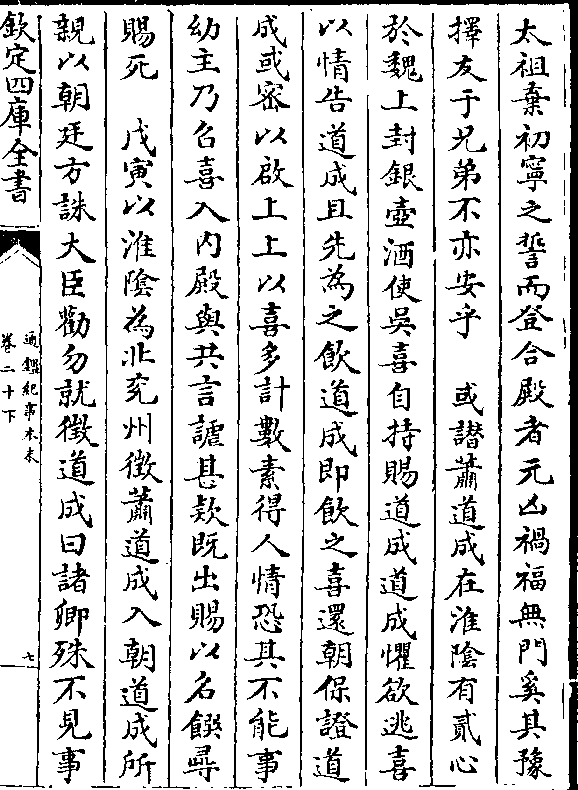 太祖棄初寧之誓而登合殿者元凶禍福無門奚其豫
擇友于兄弟不亦安乎　或譖蕭道成在淮陰有貳心
於魏上封銀壺酒使吳喜自持賜道成道成懼欲逃喜
以情告道成且先為之飲道成即飲之喜還朝保證道
成或密以啟上上以喜多計數素得人情恐其不能事
幼主乃召喜入內殿與共言謔甚欵既出賜以名饌尋
賜死　戊寅以淮陰為北兖州徴蕭道成入朝道成所
親以朝廷方誅大臣勸勿就徴道成曰諸卿殊不見事
欽定四庫全書
通鑑紀事本末
卷二十下
七